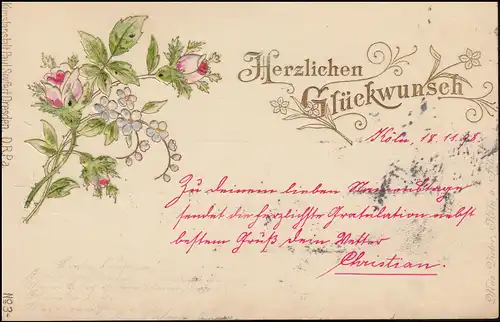 Herzlichen
Glückwunsch
Köln, 18.11.98.
Zu deinem lieben Namenstage
sendet die herzlichste Gratulation nebst
bestem Gruß dein Vetter
Christian.
Kunstanstalt Paul Dresden. D.R.P.a.
No 3